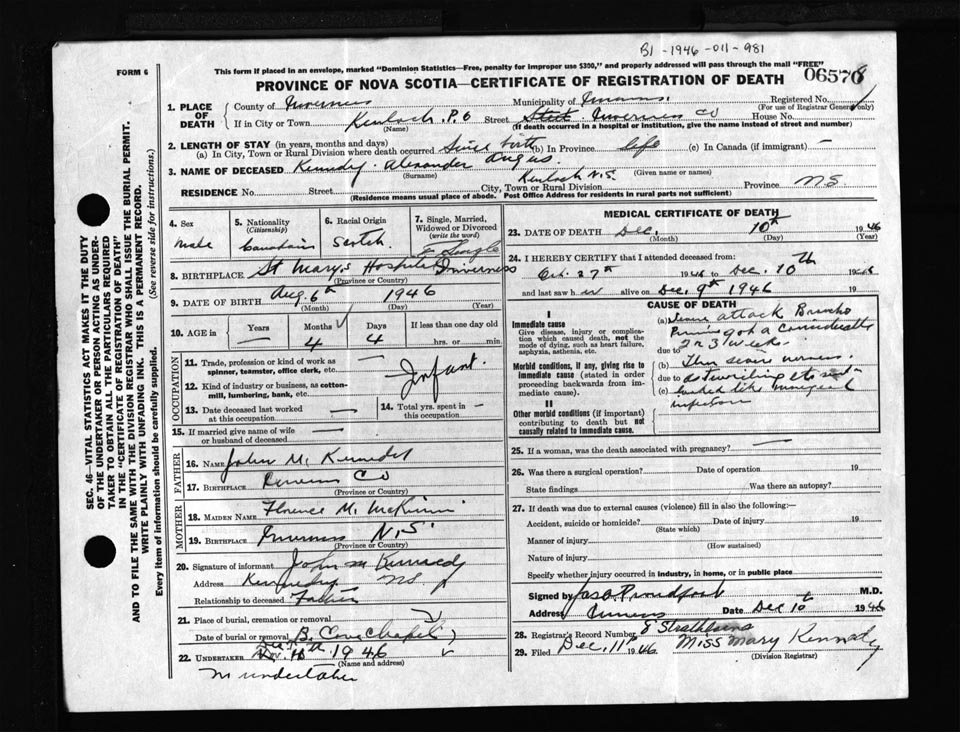 B1-1946-011-981
FORM 6
This form if placed in an envelope, marked "Dominion Statistics—Free, penalty for improper use $300," and properly addressed will pass through the mail "FREE"
PROVINCE OF NOVA SCOTIA—CERTIFICATE OF REGISTRATION OF DEATH 06578
1. PLACE OF DEATH County of Inverness Municipality of Inverness. Registered No.
(For use of Registrar General only)
If in City or Town Kenloch P.O Street Inverness Co House No.
(Name) (If death occurred in a hospital or institution, give the name instead of street and number)
2. LENGTH OF STAY (in years, months and days)
(a) In City, Town or Rural Division where death occurred Since birth (b) In Province Life (c) In Canada (if immigrant) —
3. NAME OF DECEASED Kennedy. Alexander Angus.
(Surname) (Given name or names)
RESIDENCE No. Street City, Town or Rural Division Kenloch N.S. Province NS
(Residence means usual place of abode. Post Office Address for residents in rural parts not sufficient)
4. Sex 5. Nationality (Citizenship) 6. Racial Origin 7. Single, Married, Widowed or Divorced (write the word)
male Canadian Scotch. Single
8. BIRTHPLACE St Mary's Hospital Inverness
(Province or Country)
9. DATE OF BIRTH Aug. 6th 1946
(Month) (Day) (Year)
10. AGE in Years Months Days If less than one day old
— 4 4 hrs. or min.
OCCUPATION
11. Trade, profession or kind of work as spinner, teamster, office clerk, etc. —
12. Kind of industry or business, as cotton-mill, lumbering, bank, etc. Infant.
13. Date deceased last worked at this occupation — 14. Total yrs. spent in this occupation —
15. If married give name of wife or husband of deceased —
FATHER
16. NAME John M. Kennedy
17. BIRTHPLACE Inverness Co
(Province or Country)
MOTHER
18. MAIDEN NAME Florence M. McKinnon
19. BIRTHPLACE Inverness N.S.
(Province or Country)
20. Signature of informant John M Kennedy
Address NS.
Relationship to deceased Father
21. Place of burial, cremation or removal
Date of burial or removal B. Cove Chapel
22. UNDERTAKER 1946
(Name and address)
undertaker
MEDICAL CERTIFICATE OF DEATH
23. DATE OF DEATH Dec. 10th 1946
(Month) (Day) (Year)
24. I HEREBY CERTIFY that I attended deceased from:
Oct. 27th 1946 to Dec. 10th 1946
and last saw h alive on Dec. 9th 1946
CAUSE OF DEATH
I
Immediate cause
Give disease, injury or complication which caused death, not the mode of dying, such as heart failure, asphyxia, asthenia, etc.
(a) Severe attack Broncho
2 or 3 weeks.
due to
Morbid conditions, if any, giving rise to immediate cause (stated in order proceeding backwards from immediate cause).
(b)
due to
(c)
II
Other morbid conditions (if important) contributing to death but not causally related to immediate cause.
25. If a woman, was the death associated with pregnancy? —
26. Was there a surgical operation? Date of operation 19
State findings Was there an autopsy?
27. If death was due to external causes (violence) fill in also the following:—
Accident, suicide or homicide? Date of injury 19
(State which)
Manner of injury
(How sustained)
Nature of injury
Specify whether injury occurred in industry, in home, or in public place
Signed by Jas. Proudfoot M.D.
Address Inverness Date Dec 10th 1946
28. Registrar's Record Number 8 Strathlorne
29. Filed Dec. 11th 1946 Miss Mary Kennedy
(Division Registrar)
SEC. 46—VITAL STATISTICS ACT MAKES IT THE DUTY
OF THE UNDERTAKER OR PERSON ACTING AS UNDERTAKER TO OBTAIN ALL THE PARTICULARS REQUIRED
IN THE "CERTIFICATE OF REGISTRATION OF DEATH"
AND TO FILE THE SAME WITH THE DIVISION REGISTRAR WHO SHALL ISSUE THE BURIAL PERMIT.
WRITE PLAINLY WITH UNFADING INK. THIS IS A PERMANENT RECORD.
Every item of information should be carefully supplied. (See reverse side for instructions.)